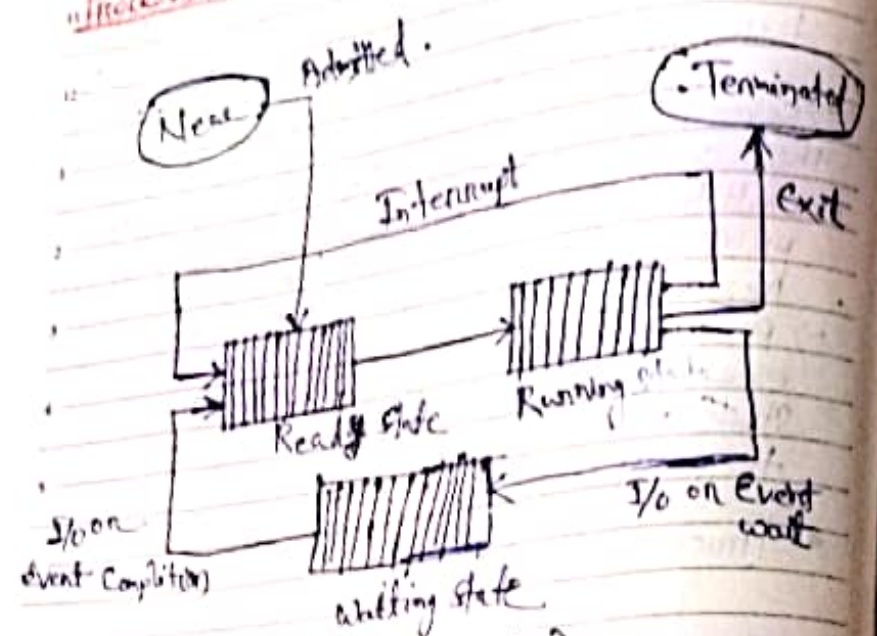 Admitted.
New
Terminated
Interrupt
Exit
Ready state
Running state
I/o on Event
wait
I/o on
event Complition
waitting state